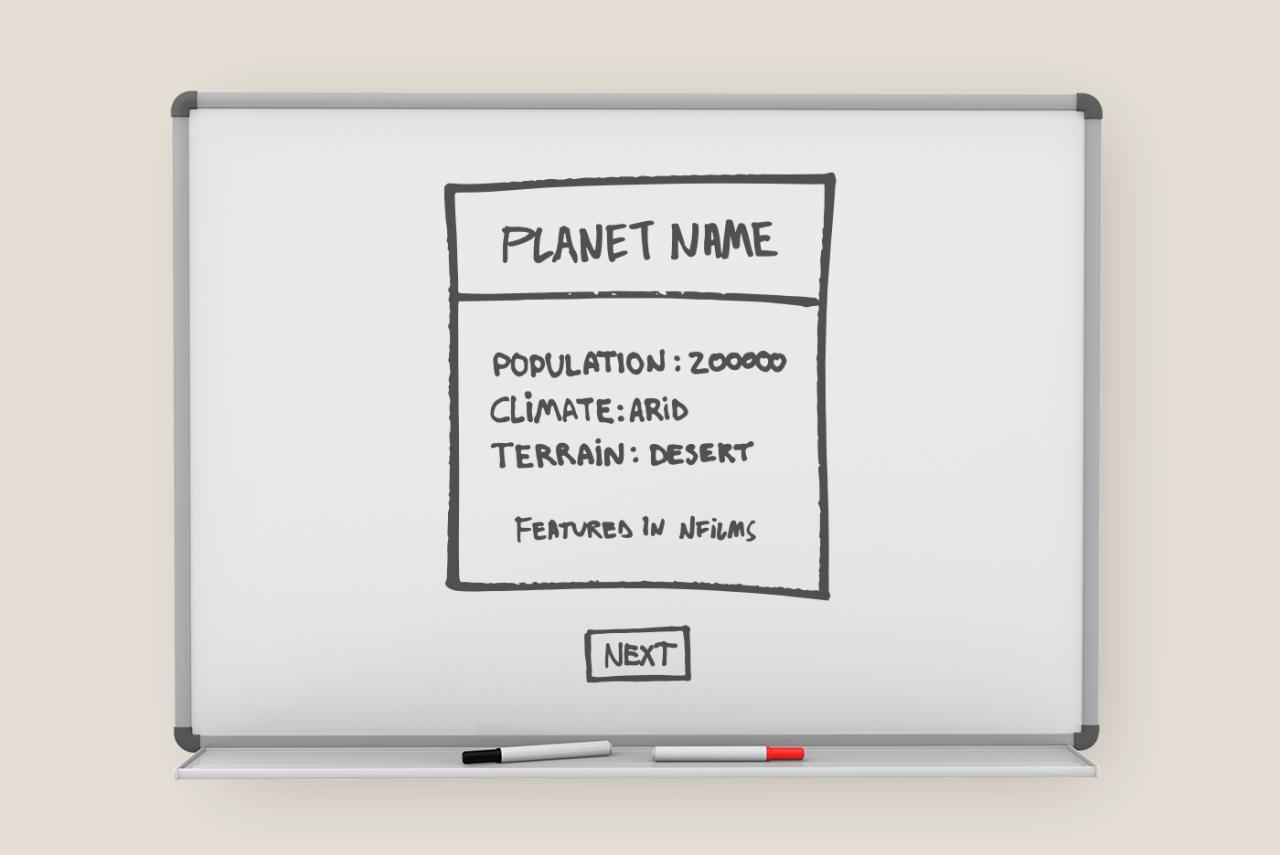 PLANET NAME
POPULATION: 200000
CLiMATE: ARiD
TERRAiN: DESERT
FEATURED IN NFiLMS
NEXT